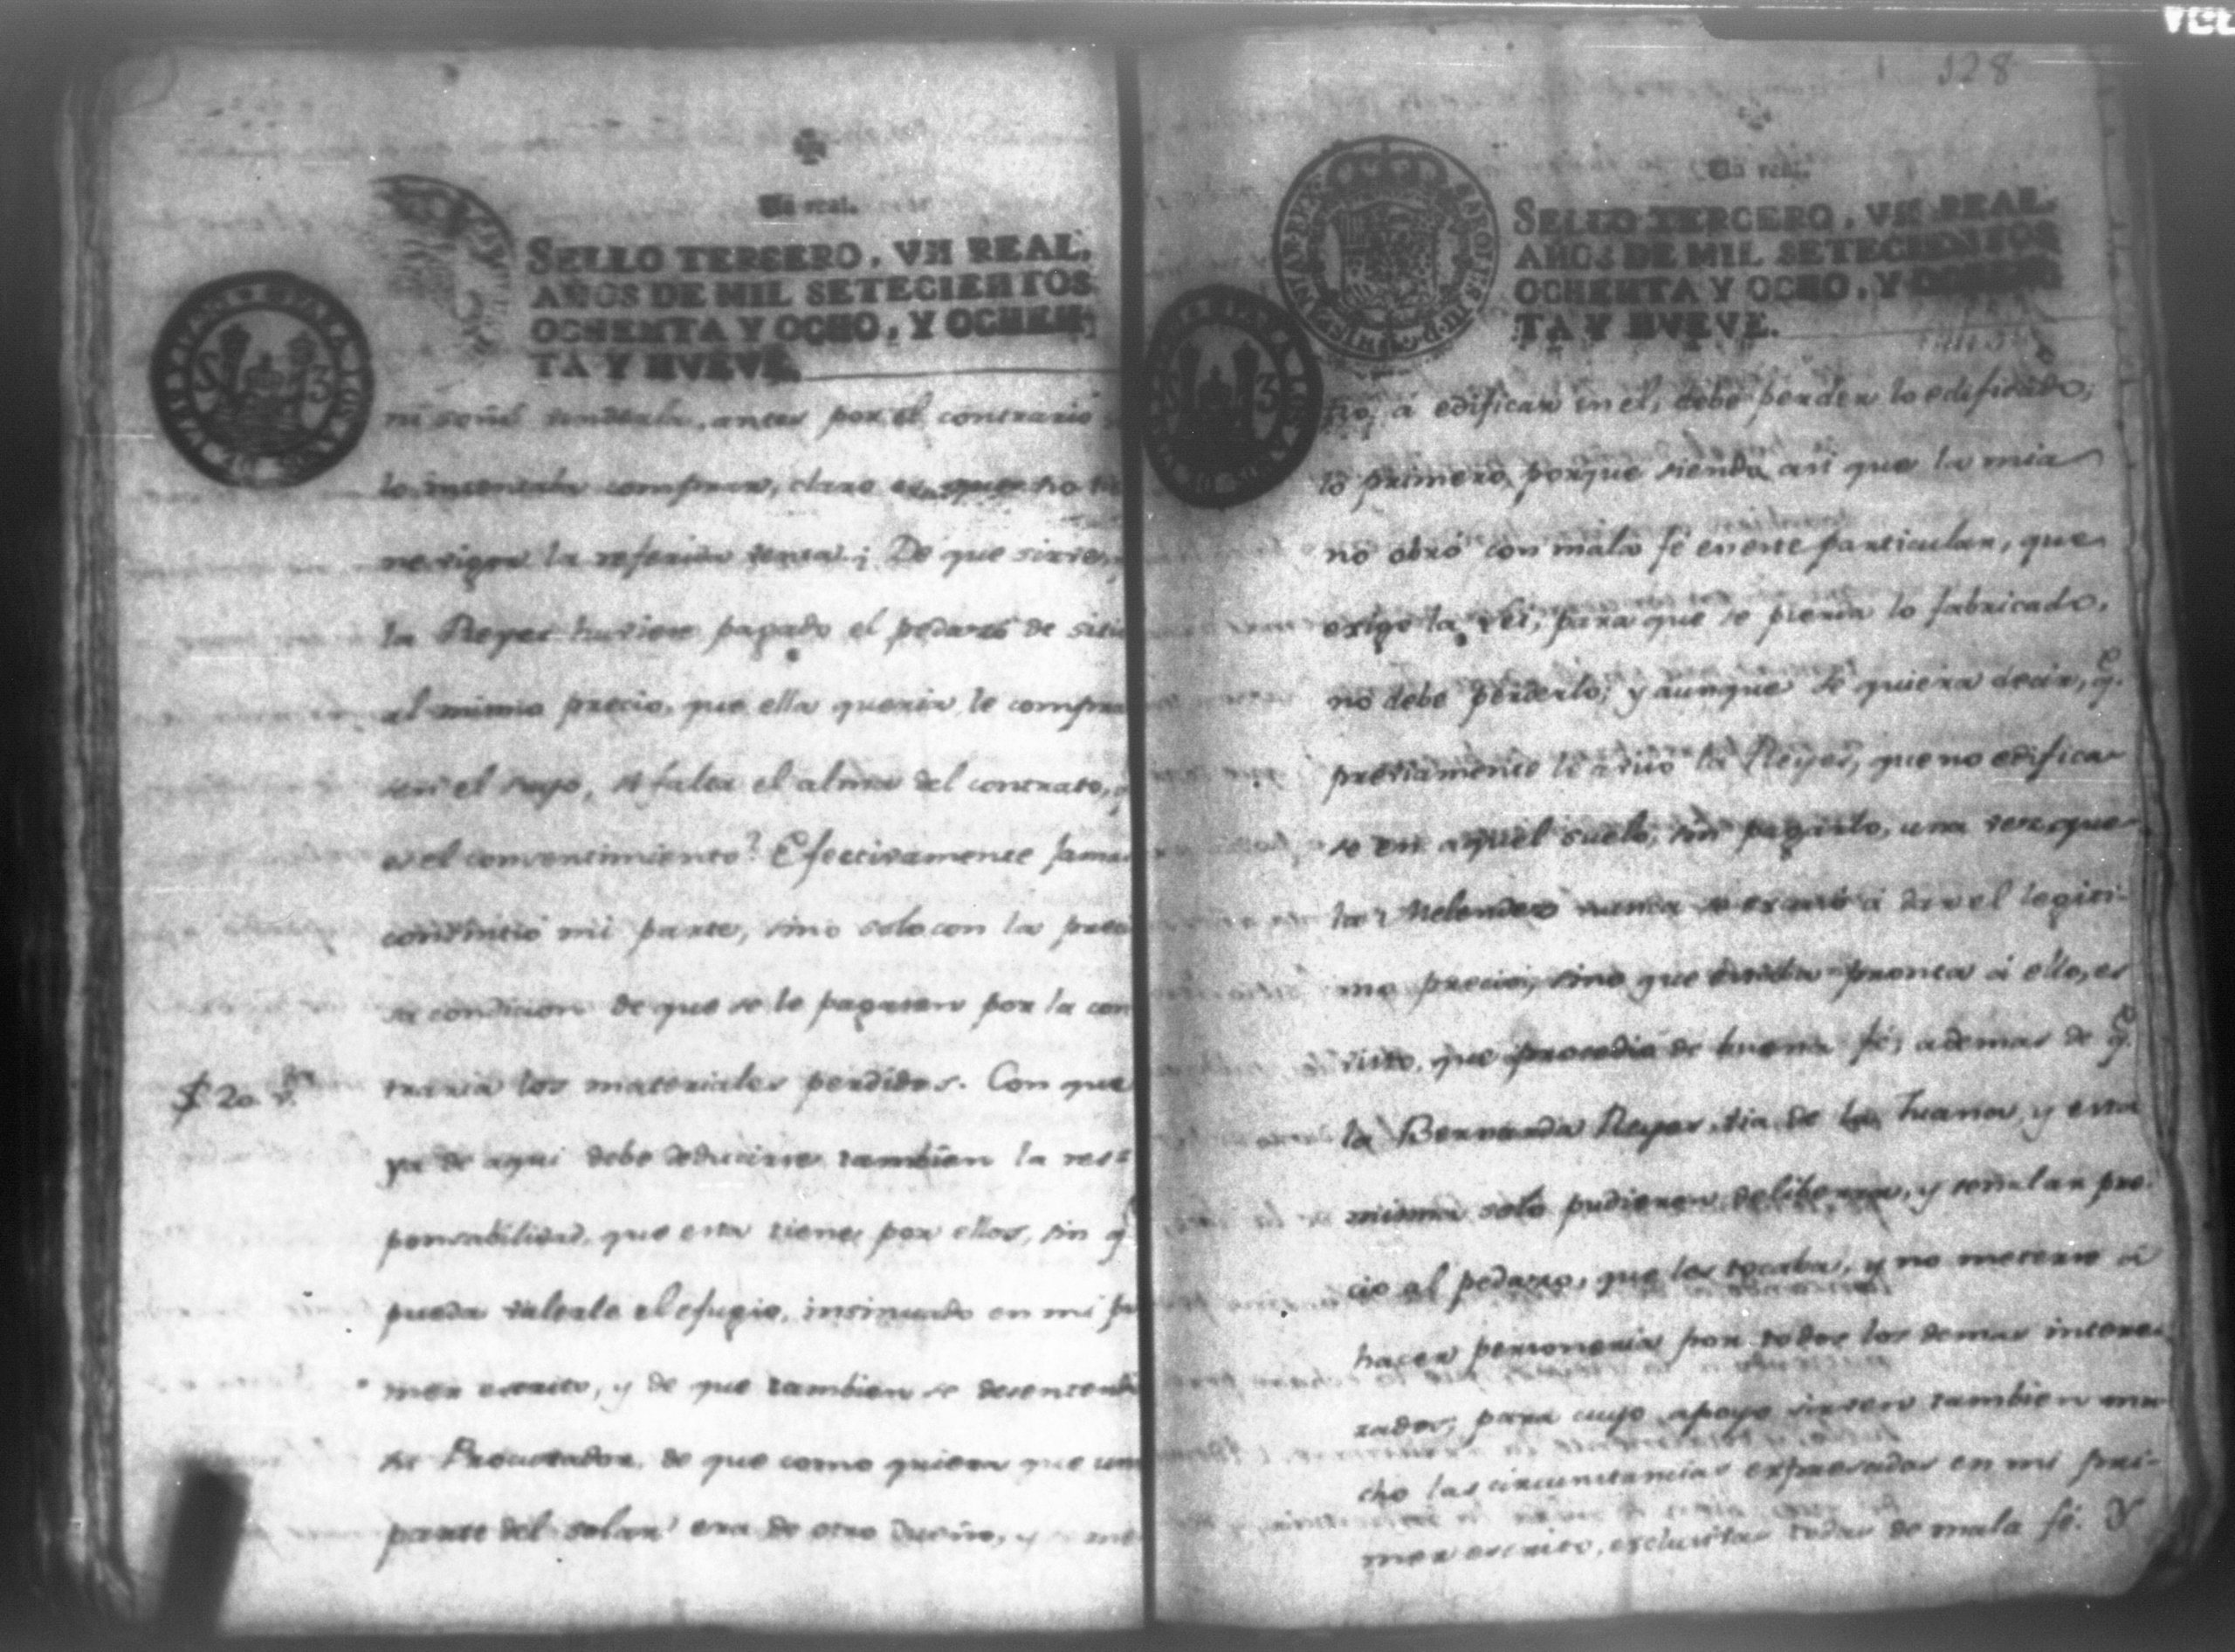 Un real.
SELLO TERCERO, VN REAL,
AÑOS DE MIL SETECIENTOS
OCHENTA Y OCHO, Y OCHEN-
TA Y NVEVE.
ni señal venderla, antes por el contrario
lo intentaba comprar, claro es, que no tie
ne vigor la referida venta. ¿De que sirve,
la Reyes huviese pagado el pedazo de sitio
al mismo precio, que ella queria le compra
sen el suyo, si falta el alma del contrato, q
es el consentimiento? Efectivamente jamas
consintió mi parte, sino solo con la preci
sa condicion de que se le pagasen por la con
$ 2o
traria los materiales perdidos. Con que
ya de aqui debe deducirse tambien la res-
ponsabilidad, que esta tiene por ellos, sin q.e
pueda valerle el efugio, insinuado en mi pri
mer escrito, y de que tambien se desentendi
su Procurador, de que como quiera que una
parte del solar era de otro Dueño, y
128
Un real.
SELLO TERCERO, VN REAL,
AÑOS DE MIL SETECIENTOS
OCHENTA Y OCHO, Y OCHEN-
TA Y NVEVE.
tio, á edificar en el, debe perder lo edificado;
lo primero, porque siendo asi que la mia
no obró con mala fé en este particular, que
exige la Lei, para que se pierda lo fabricado,
no debe perderlo; y aunque se quiera decir, q.e
previamente le avisó la Reyes, que no edifica
se en aquel suelo, sin pagarlo, una vez que
la Melendez nunca se escusó á dar el legiti-
mo precio, sino que estaba pronta á ello, es
visto, que procedia de buena fé; ademas de q.e
la Bernarda Reyes, tia de la Juana, y esta
misma solo pudieron deliberar, y señalar pre-
cio al pedazo, que les tocaba, y no meterse á
hacer personeria por todos los demas intere-
zados; para cuyo apoyo sirven tambien mu-
cho las circunstancias expresadas en mi pri-
mer escrito, exclusivas todas de mala fé. Y